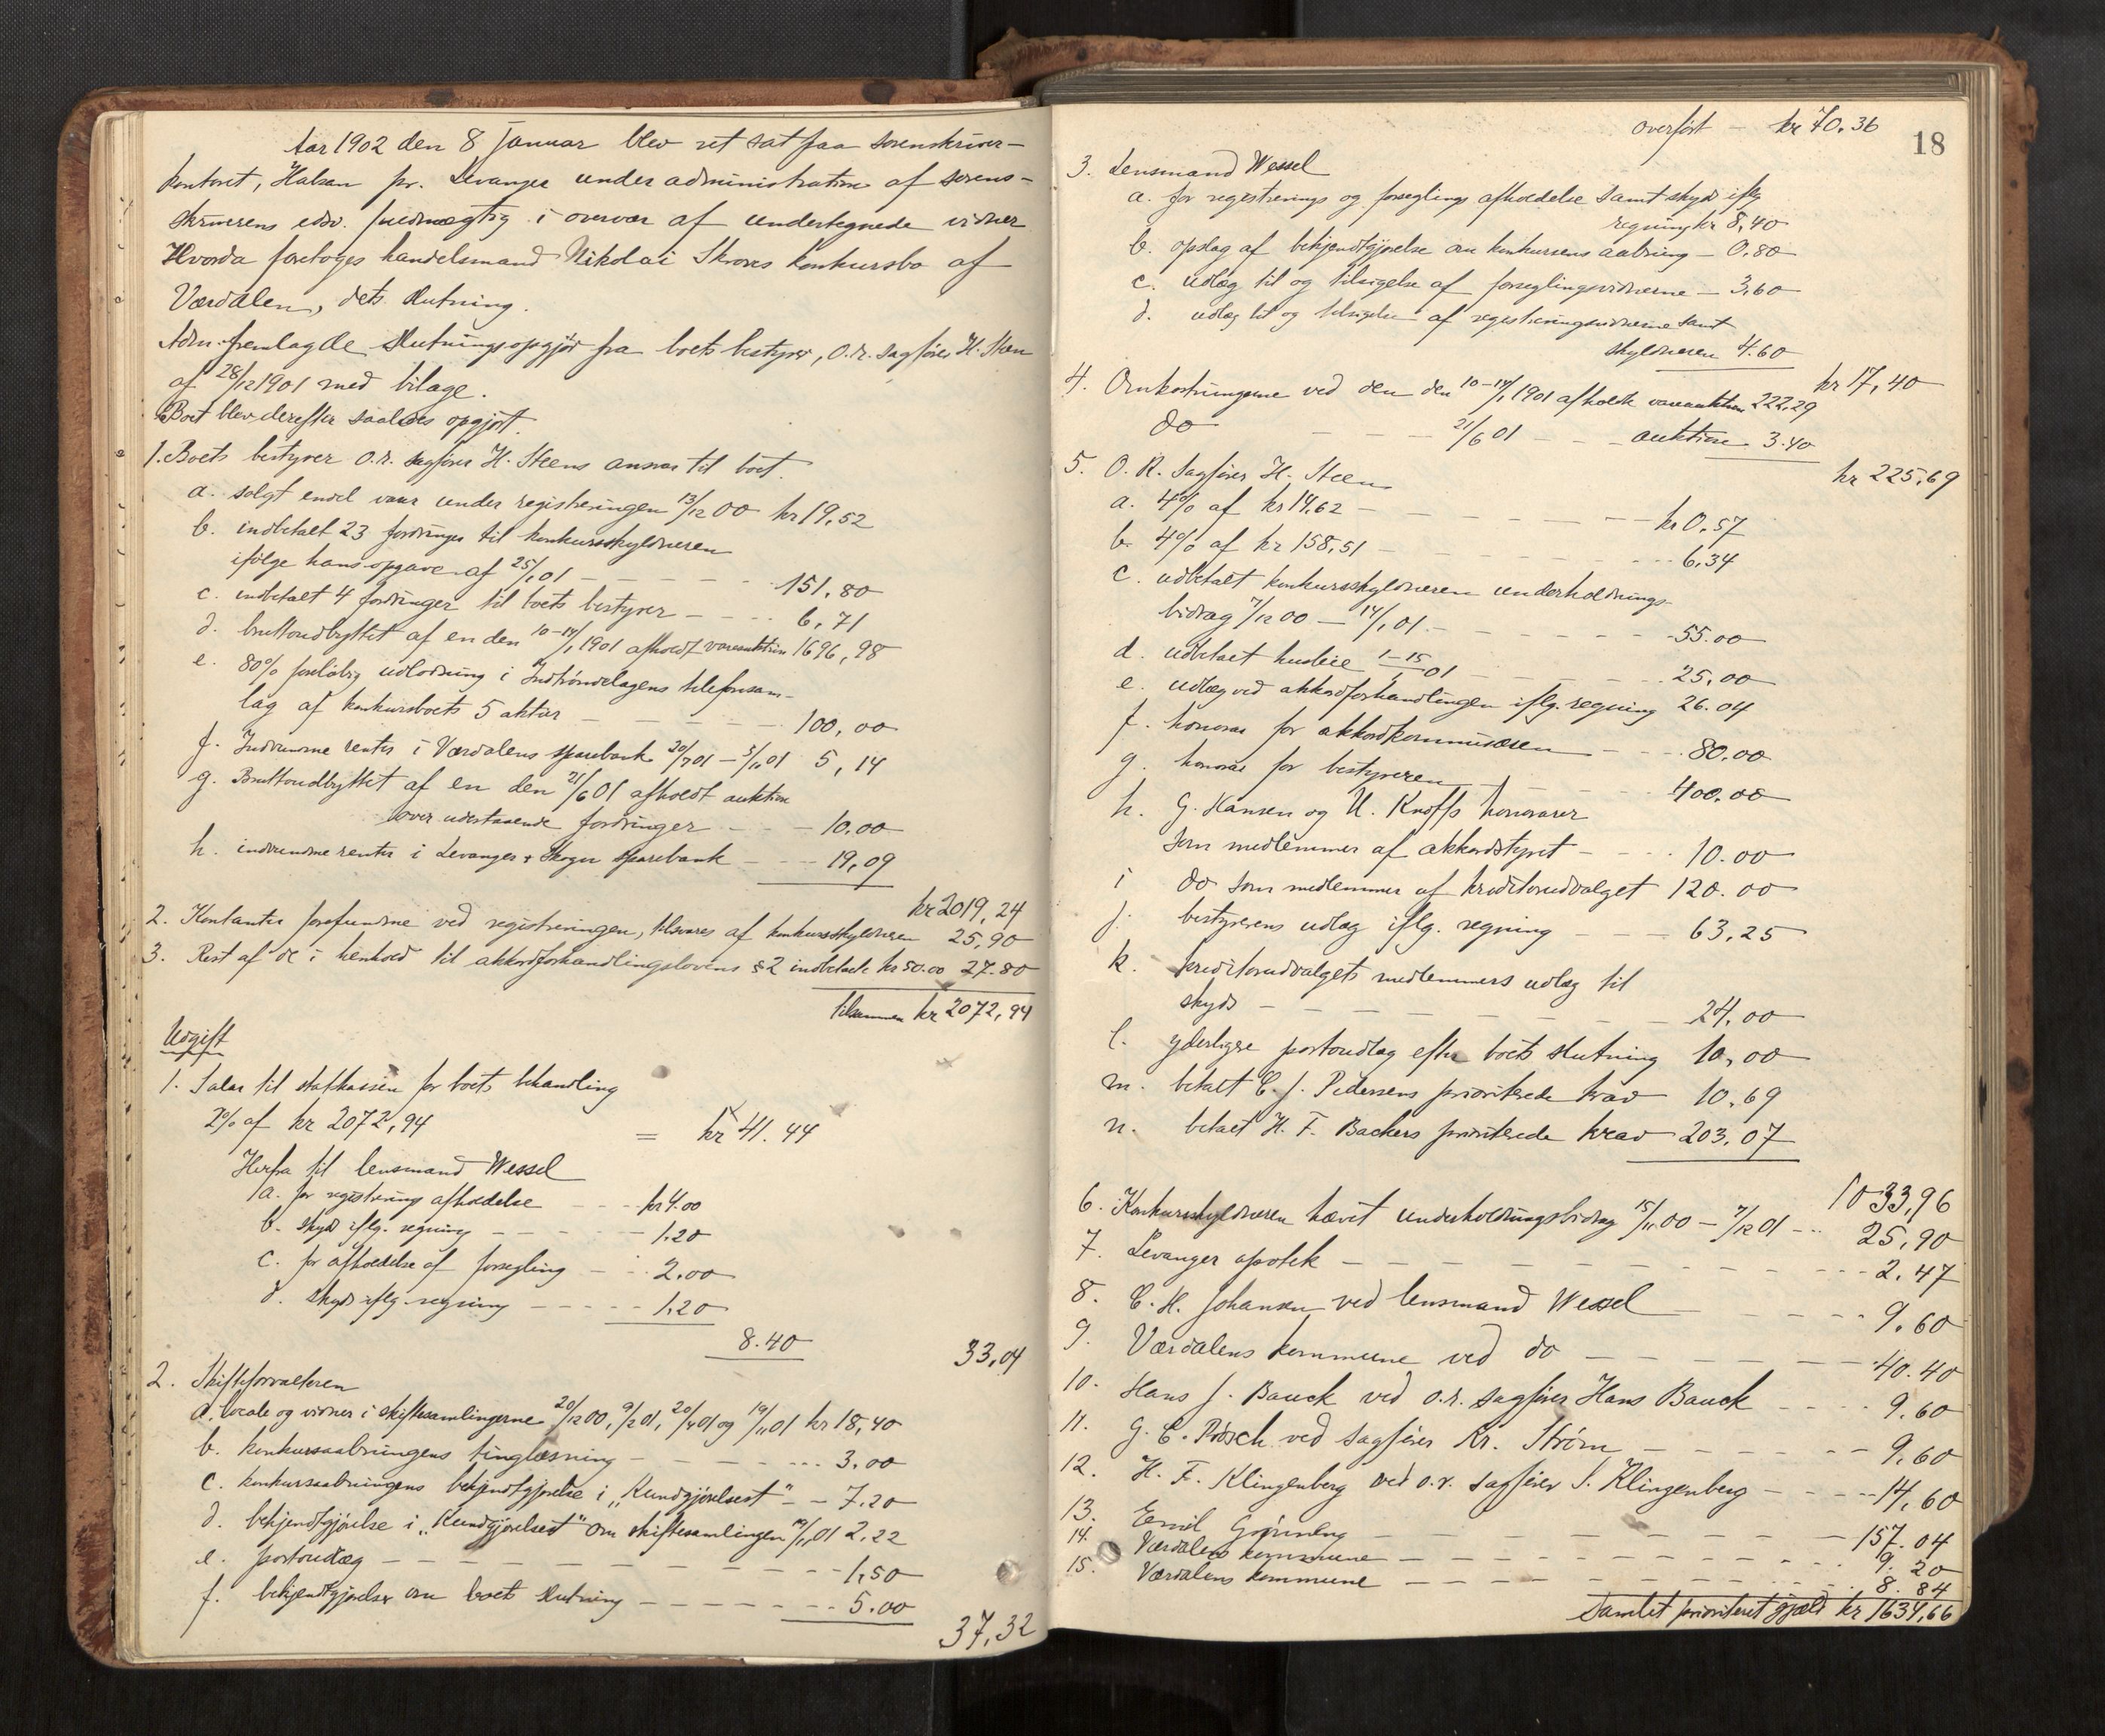 Aar 1902 den 8 januar blev ret sat paa sorenskriver-
kontoret, Halsan pr. Levanger under administration af sorens-
skriverens edsv. fuldmægtig i overvær af undertegnede vidner
Hvorda foretoges handelsmand Nikolai Skroves konkursbo af
Værdalen, dets slutning.
Adm. fremlagde slutningsopgjør fra boets bestyrer, o.r. sagfører H. Steen
af 28/12 1901 med bilage.
Boet blev derefter saaledes opgjort.
1. Boets bestyrer o.r. sagfører H. Steens ansvar til boet.
a. solgt endel varer under registreringen 13/12 00 kr 19,52
b. indbetalt 23 fordringer til konkursskyldneren
ifølge hans opgave af 25/1 01 – – – – 151,80
c. indbetalt 4 fordringer til boets bestyrer – – – 6,71
d. bruttoudbyttet af en den 10-14/1 1901 afholdt vareauktion 1696,98
e. 80% foreløbig udlodning i Indtrøndelagens telefonsam-
lag af konkursboets 5 aktier – – – – 100,00
f. Indvundne renter i Værdalens sparebank 20/7 01 – 5/11 01 5,14
g. Bruttoudbyttet af en den 21/6 01 afholdt auktion
over udestaaende fordringer – – – 10.00
h. indvundne renter i Levanger & Skogn sparebank – – – 19,09
kr 2019,24
2. Kontanter forefundne ved registreringen, tilsvares af konkursskyldneren 25,90
3. Rest af de i henhold til akkordforhandlingslovens § 2 indbetalte kr 50.00 27.80
tilsammen kr 2072,94
Udgift
1. Salær til statskassen for boets behandling
2% af kr 2072,94 = kr 41.44
Herfra til lensmand Wessel
a. for registrerings afholdelse – – – kr 4.00
b. skyds iflg. regning – – – – 1.20
c. for afholdelse af forsegling – – 2.00
d. skyds iflg. regning – – – – 1.20
8.40 33,04
2. Skifteforvalteren
a. locale og vidner i skiftesamlingerne 20/12 00, 9/2 01, 20/4 01 og 19/11 01 kr 18,40
b. konkursaabningens tinglæsning – – – – 3.00
c. konkursaabningens bekjendtgjørelse i „Kundgjørelsest" – – 7.20
d. bekjendtgjørelse i „Kundgjørelsest" om skiftesamlingen 19/11 01 2,22
e. portoudlæg – – – – – – – 1,50
f. bekjendtgjørelse om boets slutning – – – – 5.00
37,32
18
overført – kr 70.36
3. Lensmand Wessel
a. for registrerings og forseglings afholdelse samt skyds iflg
regning kr 8,40
b. opslag af bekjendtgjørelse om konkursens aabning – 0.80
c. udlæg til og tilsigelse af forseglingsvidnerne – 3.60
d. udlæg til og tilsigelse af registreringsvidnerne samt
skyldneren 4.60
kr 17,40
4. Omkostningerne ved den den 10-14/1 1901 afholdte vareauktion 222,29
do – – – 21/6 01 – – – auktion 3.40
kr 225,69
5. O. R. sagfører H. Steen
a. 4% af kr 14,62 – – – – – – kr 0,57
b. 4% af kr 158,51 – – – – – – 6,34
c. udbetalt konkursskyldneren underholdnings-
bidrag 7/12 00 – 14/1 01 – – – – – 55.00
d. udbetalt husleie 1-15/1 01 – – – – 25.00
e. udlæg ved akkordforhandlingen iflg. regning 26.04
f. honorar for akkordkommissæren – – – 80.00
g. honorar for bestyreren – – – – 400.00
h. G. Hansen og U. Knoffs honorarer
som medlemmer af akkordstyret – – – 10.00
i do som medlemmer af kreditorudvalget 120.00
j. bestyrerens udlæg iflg. regning – – – 63,25
k. kreditorudvalgets medlemmers udlæg til
skyds – – – – – – – 24,00
l. yderligere portoudlæg efter boets slutning 10,00
m. betalt C. J. Pedersens prioriterede krav 10,69
n. betalt H. F. Backers prioriterede krav 203.07
1033,96
6. Konkursskyldneren hævet underholdningsbidrag 15/11 00 – 7/12 01 – – 25,90
7. Levanger apotek – – – – – – – – 2.47
8. C. H. Johansen ved lensmand Wessel – – – – 9.60
9. Værdalens kommune ved do – – – – – 40.40
10. Hans J. Bauck ved o.r. sagfører Hans Bauck – – – 9.60
11. G. C. ved sagfører Kr. Strøm – – – – – 9.60
12. H. F. Klingenberg ved o.r. sagfører S. Klingenberg – – – 14,60
13. Emil – – – – – – – 157.04
14. Værdalens kommune – – – – – – – 9.20
15. Værdalens kommune – – – – – – – 8.84
Samlet prioriteret gjæld kr 1634,66